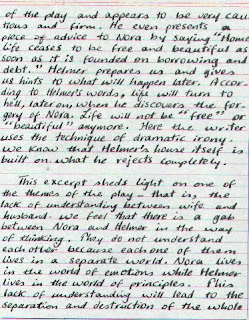 of the play and appears to be very cau
tions and firm. He even presents a
piece of advice to Nora by saying "Home
life ceases to be free and beautiful as
soon as it is founded on borrowing and
debt." Helmer prepares us and gives
us hints to what will happen later. Accor
ding to Helmer's words, life will turn to
hell, later on, when he discovers the for
gery of Nora. Life will not be "free" or
"beautiful" anymore. Here the writer
uses the technique of dramatic irony.
We know that Helmer's house itself is
built on what he rejects completely.
This excerpt sheds light on one of
the themes of the play - that is, the
lack of understanding between wife and
husband. We feel that there is a gab
between Nora and Helmer in the way
of thinking. They do not understand
each other because each one of them
lives in a separate world. Nora lives
in the world of emotions while Helmer
lives in the world of principles. This
lack of understanding will lead to the
separation and destruction of the whole